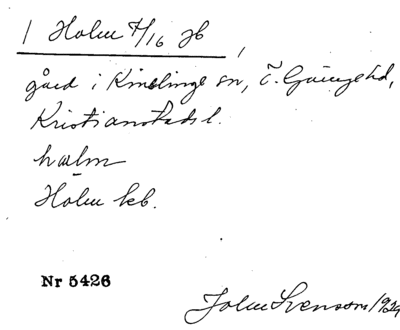 1 Holm 7/16 jb,
gård i Knislinge sn, Ö. Göinge hd,
Kristianstads l.
halm
Holm kb.
Nr 5426
John Svensson 1929